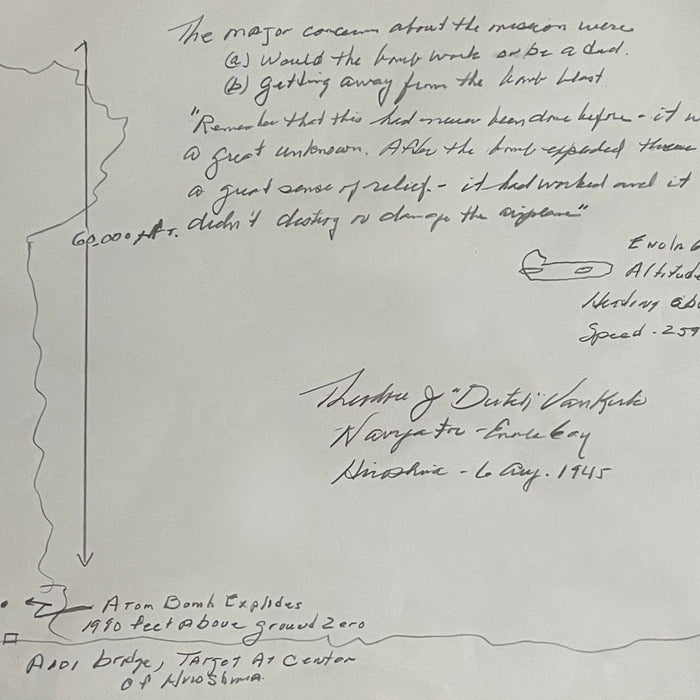 The major concern about the mission were
(a) Would the bomb work or be a dud.
(b) getting away from the bomb blast
"Remember that this had never been done before - it w
a great unknown. After the bomb exploded there
a great sense of relief - it had worked and it
didn't destroy or damage the airplane"
60,000 ft.
Enola G
Altitude
Heading ab
Speed - 259
Theodore J "Dutch" VanKirk
Navigator - Enola Gay
Hiroshima - 6 Aug. 1945
Atom Bomb Explodes
1990 feet above ground zero
Aioi bridge, Target At Center
of Hiroshima.